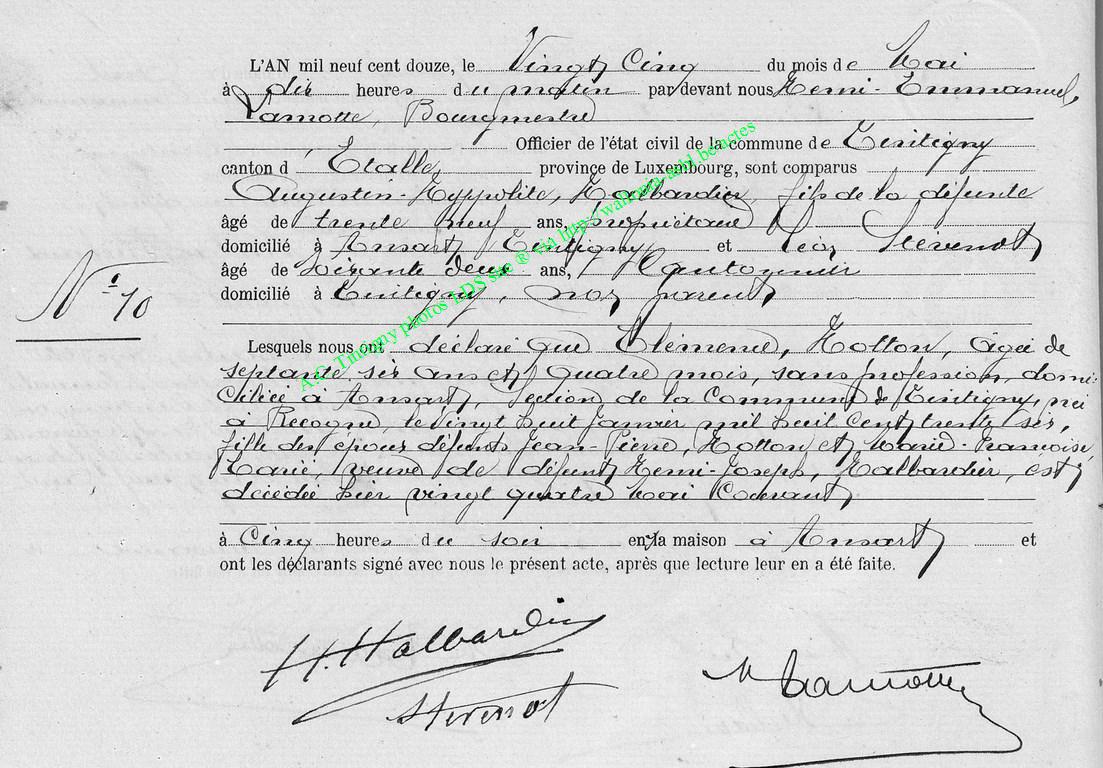 L'AN mil neuf cent douze, le Vingt Cinq du mois de Mai
à dix heures du matin par devant nous Henri-Emmanuel,
Lamotte, Bourgmestre
Officier de l'état civil de la commune de Tintigny
canton d'Etalle, province de Luxembourg, sont comparus
Augustin-Hyppolite, Halbardier, fils de la défunte
âgé de trente neuf ans propriétaire
domicilié à Ansart Tintigny et Léon Stévenot
âgé de soixante deux ans, Cantonnier
domicilié à Tintigny, non parent
N° 10
Lesquels nous ont déclaré que Clémence, Hotton, âgée de
septante six ans et quatre mois, sans profession, domi-
ciliée à Ansart, Section de la Commune de Tintigny, née
à Recogne, le vingt huit Janvier mil huit cent trente six,
fille des époux défunts Jean-Pierre, Hotton et Marie-Françoise,
Marié, veuve de défunt Henri-Joseph, Halbardier, est
décédée hier vingt quatre Mai Courant
à Cinq heures du soir en la maison à Ansart et
ont les déclarants signé avec nous le présent acte, après que lecture leur en a été faite.
H. Halbardier
Stévenot
Lamotte
A.C. Tintigny photos LDS sac ® via http://wallonia-asbl.be/actes